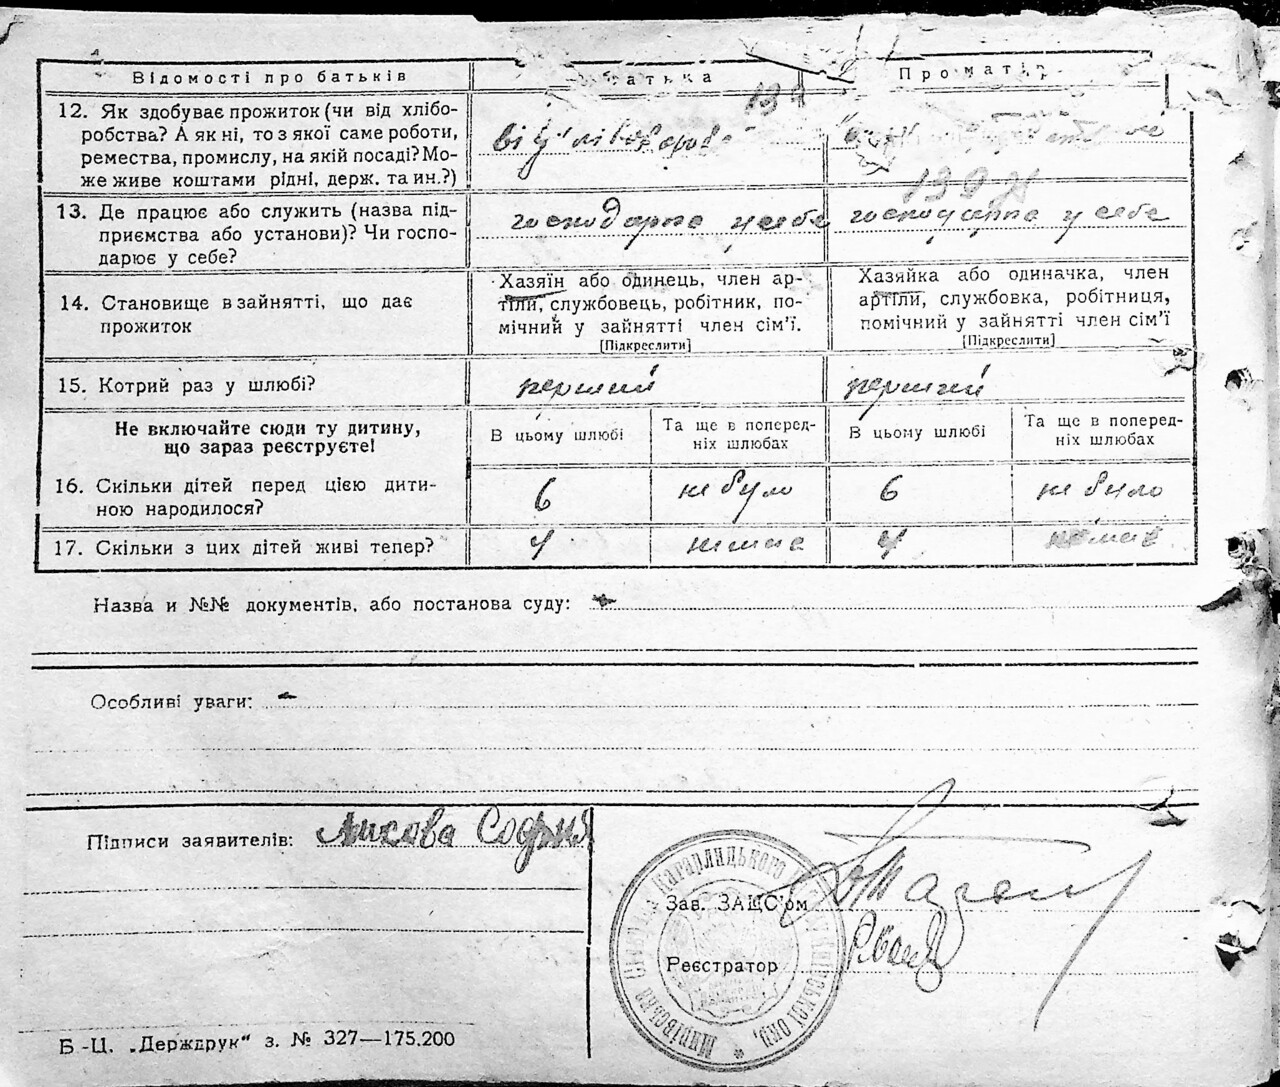 Відомості про батьків
батька
Про матір
12. Як здобуває прожиток (чи від хлібо-
робства? А як ні, то з якої саме роботи,
ремества, промислу, на якій посаді? Мо-
же живе коштами рідні, держ. та ин.?)
139
13. Де працює або служить (назва під-
приємства або установи)? Чи госпо-
дарює у себе?
господарює у себе
господарює у себе
14. Становище в зайнятті, що дає
прожиток
Хазяїн або одинець, член ар-
тіли, службовець, робітник, по-
мічний у зайнятті член сім'ї.
[Підкреслити]
Хазяйка або одиначка, член
артіли, службовка, робітниця,
помічний у зайнятті член сім'ї
[Підкреслити]
15. Котрий раз у шлюбі?
перший
перший
Не включайте сюди ту дитину,
що зараз реєструєте!
В цьому шлюбі
Та ще в поперед-
ніх шлюбах
В цьому шлюбі
Та ще в поперед-
ніх шлюбах
16. Скільки дітей перед цією дити-
ною народилося?
6
не було
6
не було
17. Скільки з цих дітей живі тепер?
4
немає
4
немає
Назва и №№ документів, або постанова суду:
Особливі уваги:
Підписи заявителів: Лисова Софія
Зав. ЗАЦС'ом
Реєстратор
Кагарлицького
Б-Ц. „Держдрук" з. № 327—175.200